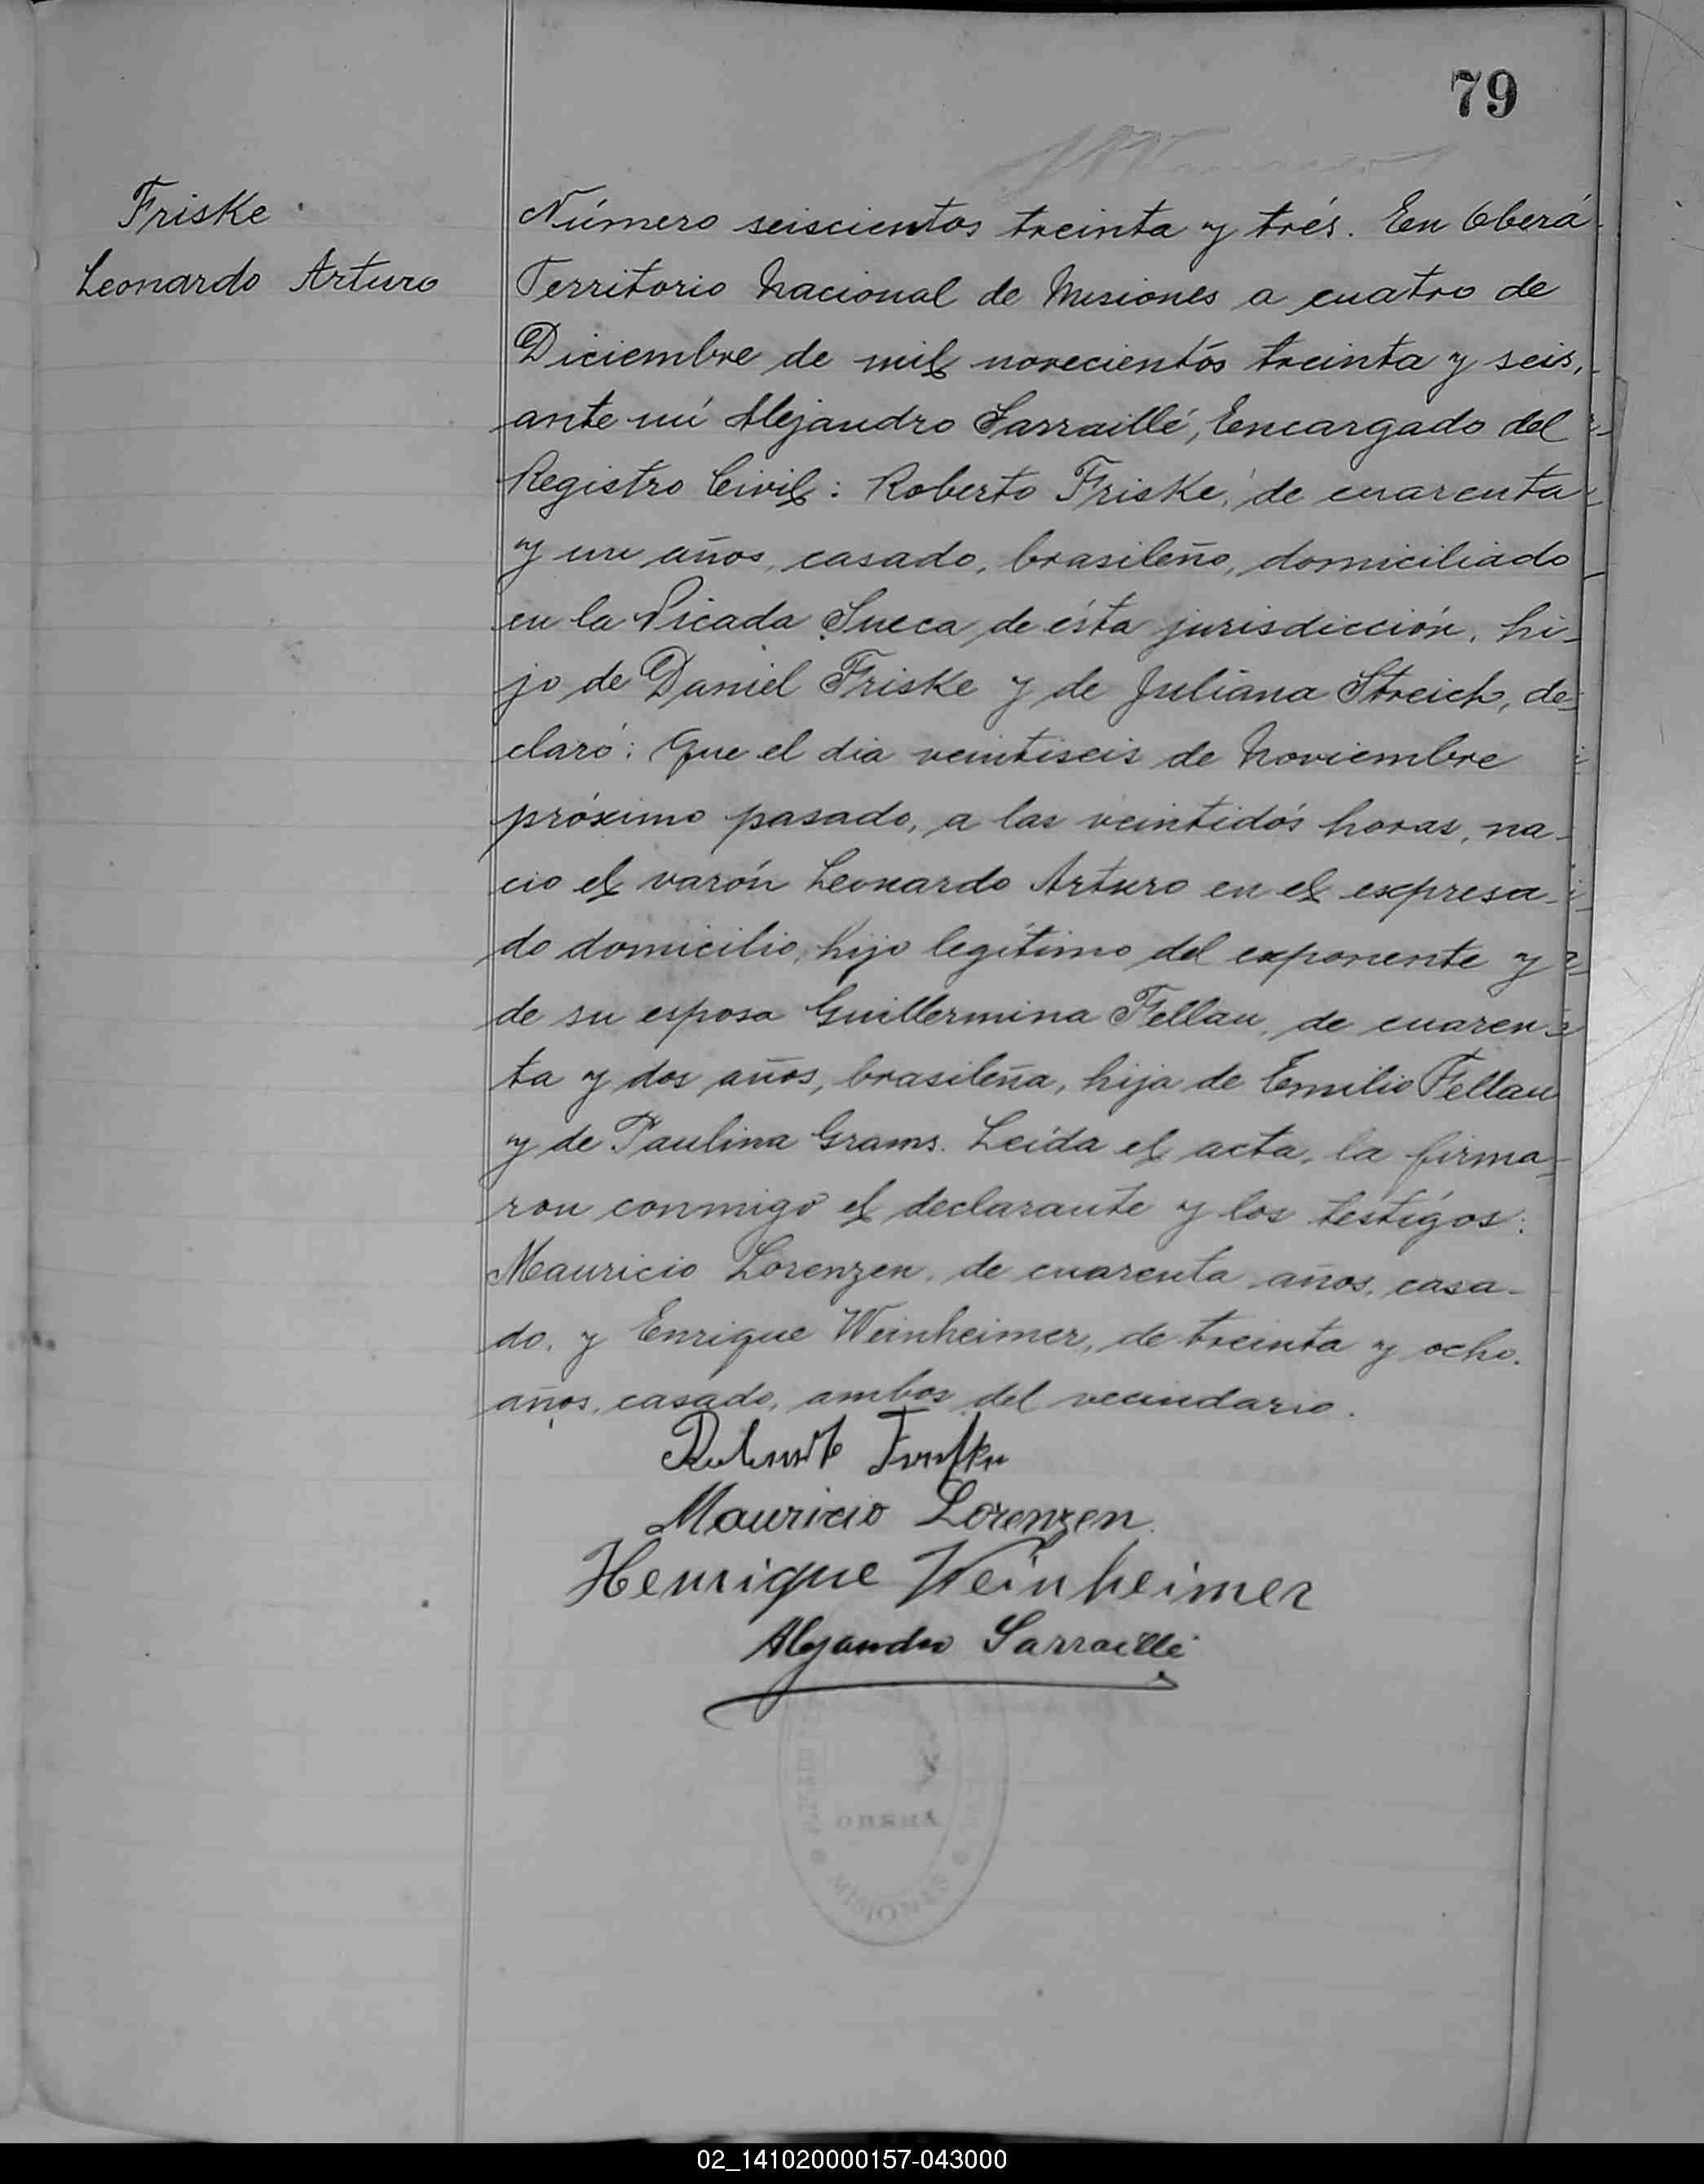 79
Friske
Leonardo Arturo
Número seiscientos treinta y trés. En Oberá
Territorio Nacional de Misiones a cuatro de
Diciembre de mil novecientos treinta y seis,
ante mí Alejandro Sarraillé, Encargado del
Registro Civil: Roberto Friske, de cuarenta
y un años, casado, brasileño, domiciliado
en la Picada Sueca de ésta jurisdicción, hi-
jo de Daniel Friske y de Juliana Streich, de-
claró: Que el dia veintiseis de Noviembre
próximo pasado, a las veintidós horas, na-
cio el varón Leonardo Arturo en el expresa-
do domicilio, hijo legítimo del exponente y
de su esposa Guillermina Fellau, de cuaren-
ta y dos años, brasileña, hija de Emilio Fellau
y de Paulina Grams. Leída el acta, la firma-
ron conmigo el declarante y los testigos:
Mauricio Lorenzen, de cuarenta años, casa-
do, y Enrique Weinheimer, de treinta y ocho
años, casado, ambos del vecindario.
Mauricio Lorenzen
Henrique Weinheimer
Alejandro Sarraillé
OBERA
MISIONES
02_141020000157-043000